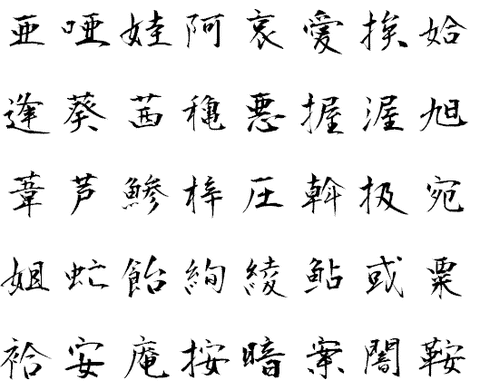 亜唖娃阿哀愛挨姶
逢葵茜穐悪握渥旭
葦芦鯵梓圧斡扱宛
姐虻飴絢綾鮎或粟
袷安庵按暗案闇鞍